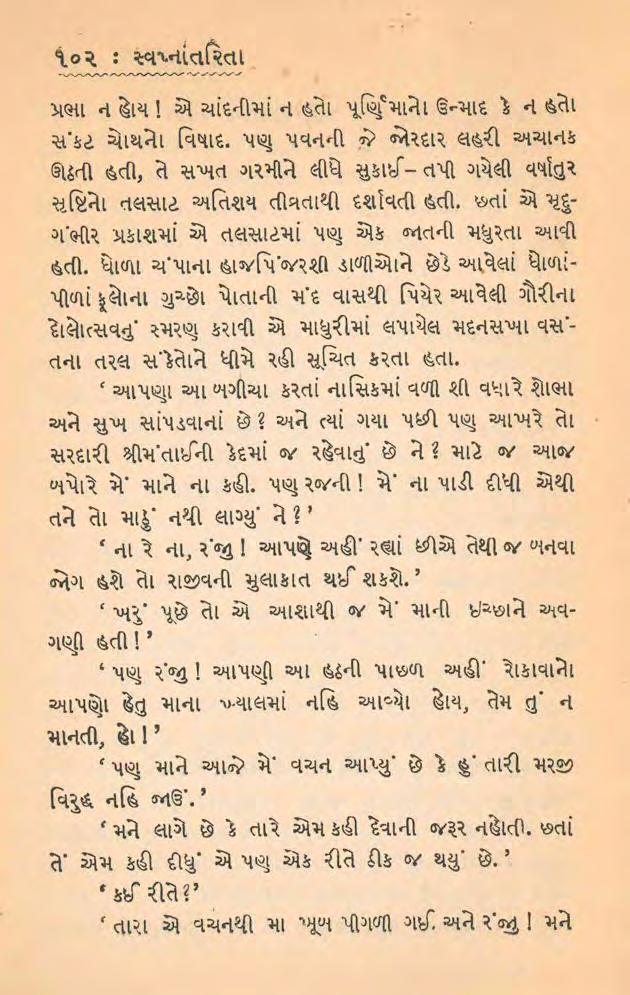 ૧૦૨ : સ્વપ્નાંતરિતા
પ્રભા ન હોય ! એ ચાંદનીમાં ન હતો પૂર્ણિમાનો ઉન્માદ કે ન હતો
સંકટ ચોથનો વિષાદ. પણ પવનની જે જોરદાર લહરી અચાનક
ઊઠતી હતી, તે સખત ગરમીને લીધે સુકાઈ – તપી ગયેલી વર્ષાતુર
સૃષ્ટિનો તલસાટ અતિશય તીવ્રતાથી દર્શાવતી હતી. છતાં એ મૃદુ-
ગંભીર પ્રકાશમાં એ તલસાટમાં પણ એક જાતની મધુરતા આવી
હતી. ધોળા ચંપાના હાજપિંજરશી ડાળીઓને છેડે આવેલાં ધોળાં-
પીળાં ફૂલોના ગુચ્છો પોતાની મંદ વાસથી પિયેર આવેલી ગૌરીના
દોલોત્સવનું સ્મરણ કરાવી એ માધુરીમાં લપાયેલ મદનસખા વસં-
તના તરલ સંકેતોને ધીમે રહી સૂચિત કરતા હતા.
‘ આપણા આ બગીચા કરતાં નાસિકમાં વળી શી વધારે શોભા
અને સુખ સાંપડવાનાં છે ? અને ત્યાં ગયા પછી પણ આખરે તો
સરદારી શ્રીમંતાઈની કેદમાં જ રહેવાનું છે ને ? માટે જ આજ
બપોરે મેં માને ના કહી. પણ રજની ! મેં ના પાડી દીધી એથી
તને તો માઠું નથી લાગ્યું ને ? ’
‘ ના રે ના, રંજુ ! આપણે અહીં રહ્યાં છીએ તેથી જ બનવા
જોગ હશે તો રાજીવની મુલાકાત થઈ શકશે. ’
‘ ખરું પૂછે તો એ આશાથી જ મેં માની ઇચ્છાને અવ-
ગણી હતી ! ’
‘ પણ રંજુ ! આપણી આ હઠની પાછળ અહીં રોકાવાનો
આપણો હેતુ માના ખ્યાલમાં નહિ આવ્યો હોય, તેમ તું ન
માનતી, હો ! ’
‘ પણ માને આજે મેં વચન આપ્યું છે કે હું તારી મરજી
વિરુદ્ધ નહિ જાઉં. ’
‘ મને લાગે છે કે તારે એમ કહી દેવાની જરૂર નહોતી. છતાં
તેં એમ કહી દીધું એ પણ એક રીતે ઠીક જ થયું છે. ’
‘ કઈ રીતે ? ’
‘ તારા એ વચનથી મા ખૂબ પીગળી ગઈ. અને રંજુ ! મને